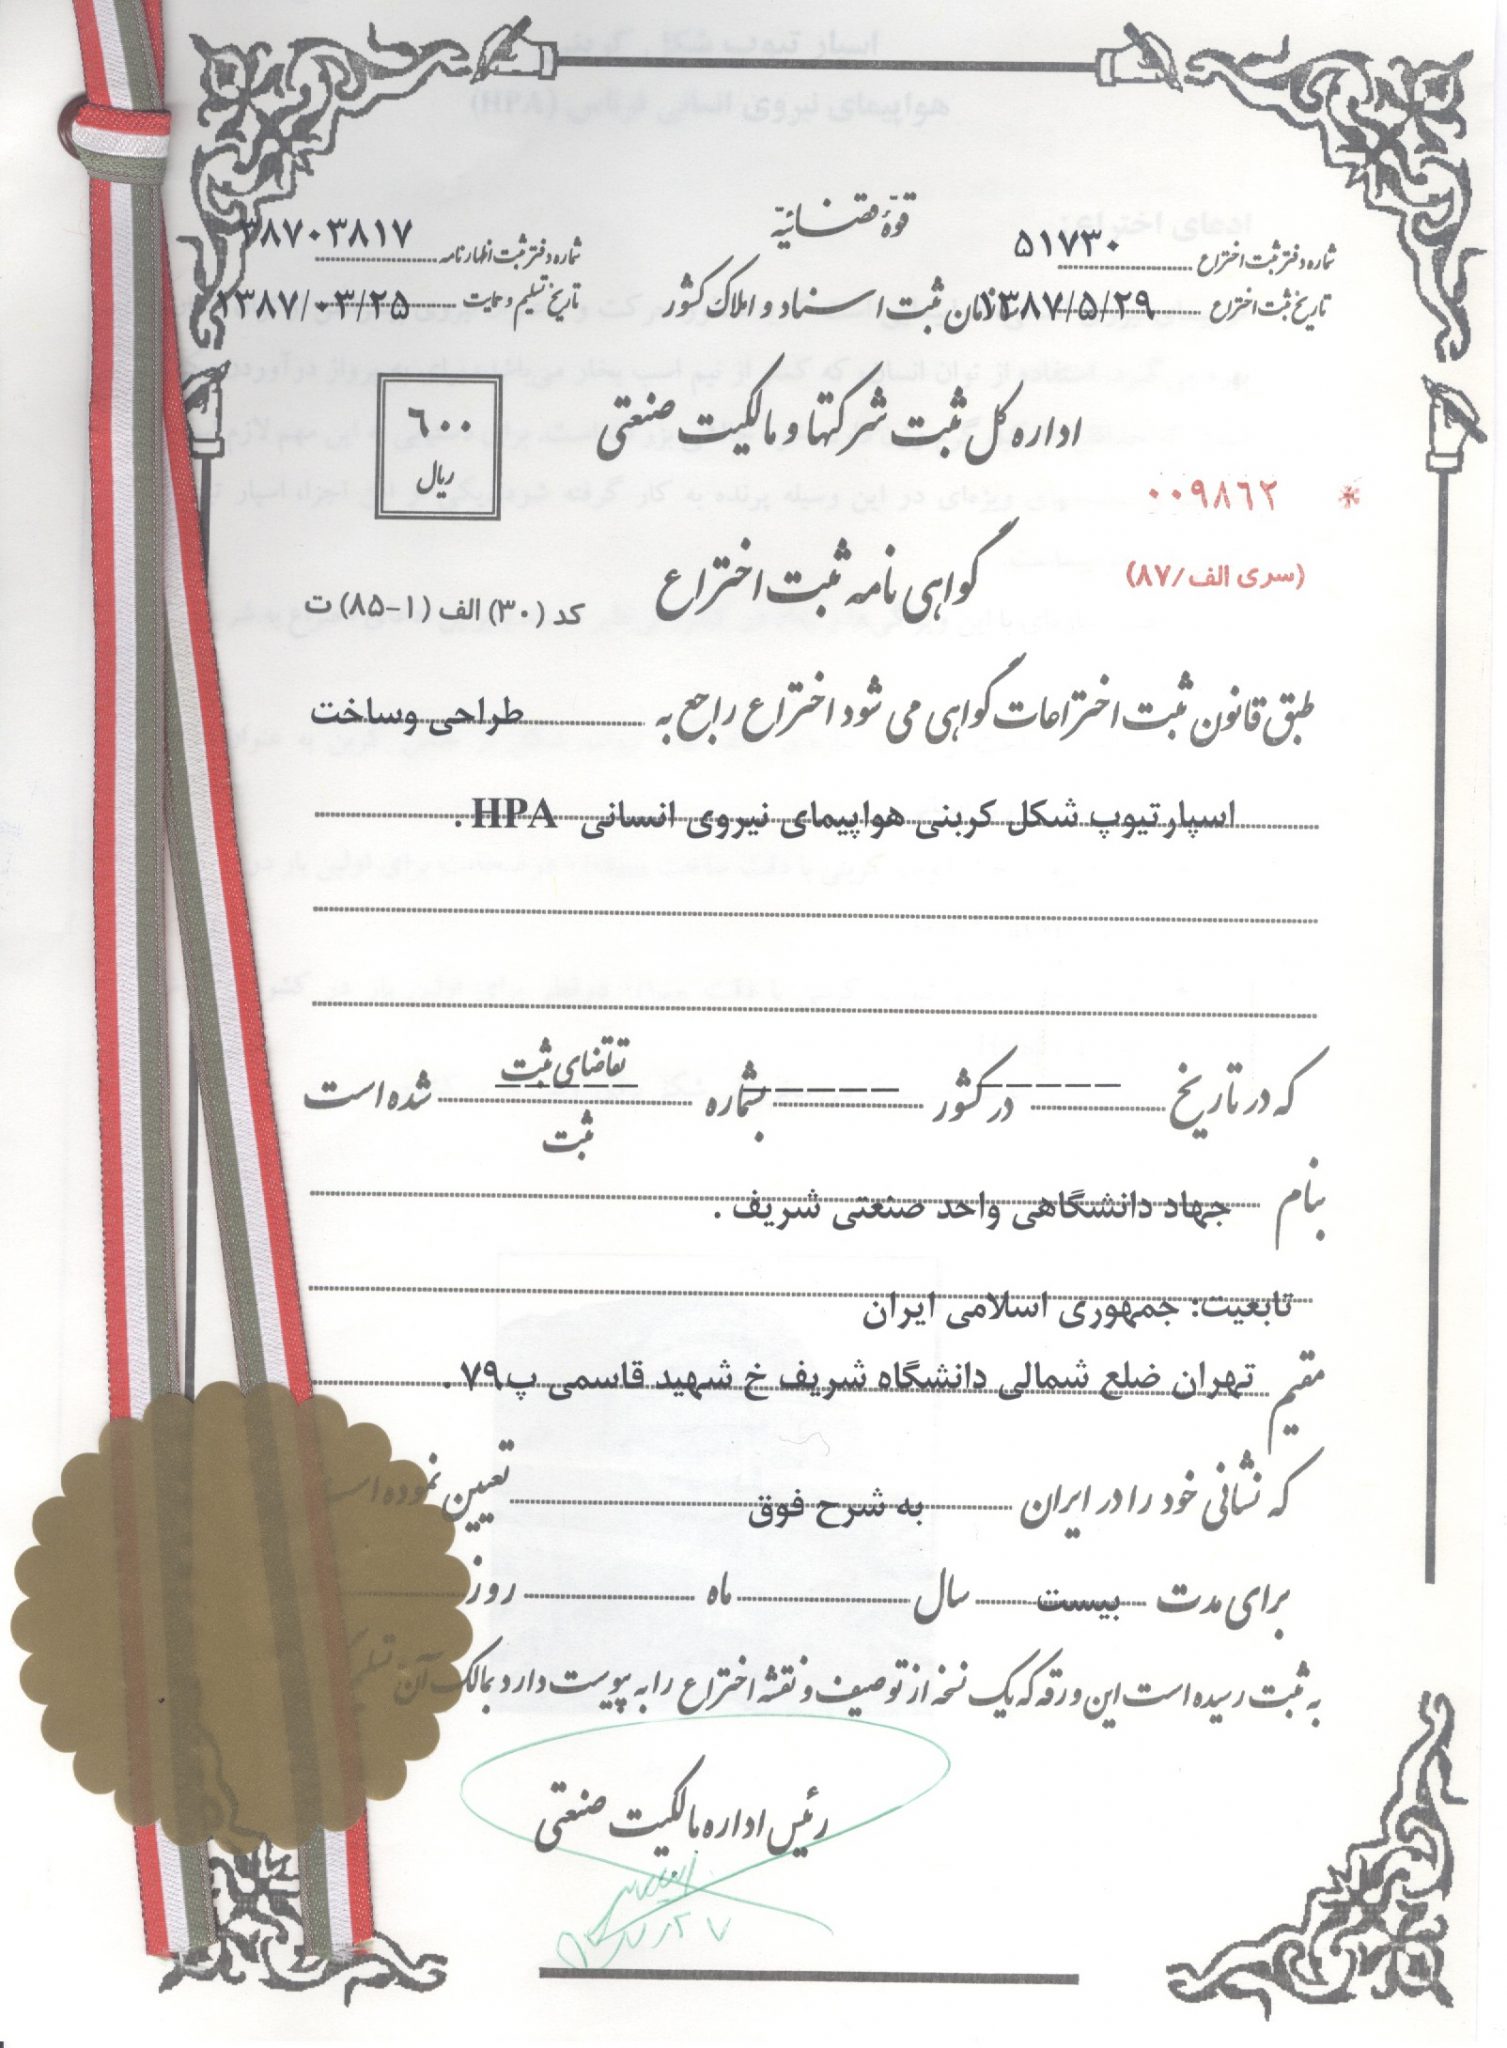 قوّهٔ قضائیّه
شماره دفتر ثبت اختراع ۵۱۷۳۰
شماره دفتر ثبت اظهارنامه ۳۸۷۰۳۸۱۷
سازمان ثبت اسناد و املاک کشور
تاریخ ثبت اختراع ۱۳۸۷/۵/۲۹
تاریخ تسلیم و حمایت ۱۳۸۷/۰۳/۲۵
اداره کل ثبت شرکتها و مالکیت صنعتی
۶۰۰
ریال
* ۰۰۹۸۶۲
(سری الف/۸۷)
گواهی نامه ثبت اختراع
کد (۳۰) الف (۱-۸۵) ت
طبق قانون ثبت اختراعات گواهی می شود اختراع راجع به طراحی وساخت
اسپارتیوپ شکل کربنی هواپیمای نیروی انسانی HPA .
که در تاریخ ------ در کشور ------ بشماره تقاضای ثبت شده است
ثبت
بنام جهاد دانشگاهی واحد صنعتی شریف .
تابعیت: جمهوری اسلامی ایران
مقیم تهران ضلع شمالی دانشگاه شریف خ شهید قاسمی پ۷۹.
که نشانی خود را در ایران به شرح فوق تعیین نموده است
برای مدت بیست سال ماه روز
به ثبت رسیده است این ورقه که یک نسخه از توصیف و نقشه اختراع را به پیوست دارد بمالک آن
رئیس اداره مالکیت صنعتی